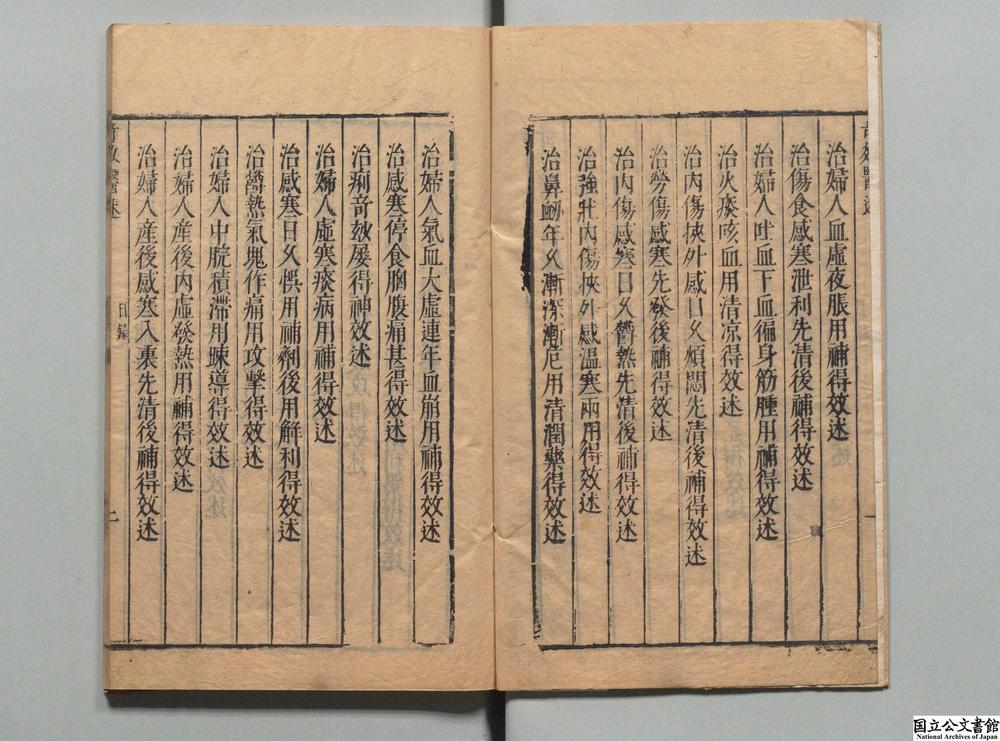 治婦人血虛夜脹用補得效述
治傷食感寒泄利先清後補得效述
治婦人吐血下血徧身筋腫用補得效述
治火痰咳血用清凉得效述
治內傷挾外感日久煩悶先清後補得效述
治勞傷感寒先發後補得效述
治內傷感寒日久欝熱先清後補得效述
治強壯內傷挾外感溫寒兩用得效述
治鼻衂年久漸深漸危用清潤藥得效述
一
治婦人氣血大虛連年血崩用補得效述
治感寒停食胸腹痛甚得效述
治痢竒效屡得神效述
治婦人虛寒痰病用補得效述
治感寒日久悞用補劑後用解利得效述
治欝熱氣塊作痛用攻擊得效述
治婦人中脘積滯用踈導得效述
治婦人産後內虛發熱用補得效述
治婦人産後感寒入裏先清後補得效述
竒效醫述
目錄
二
国立公文書館
National Archives of Japan